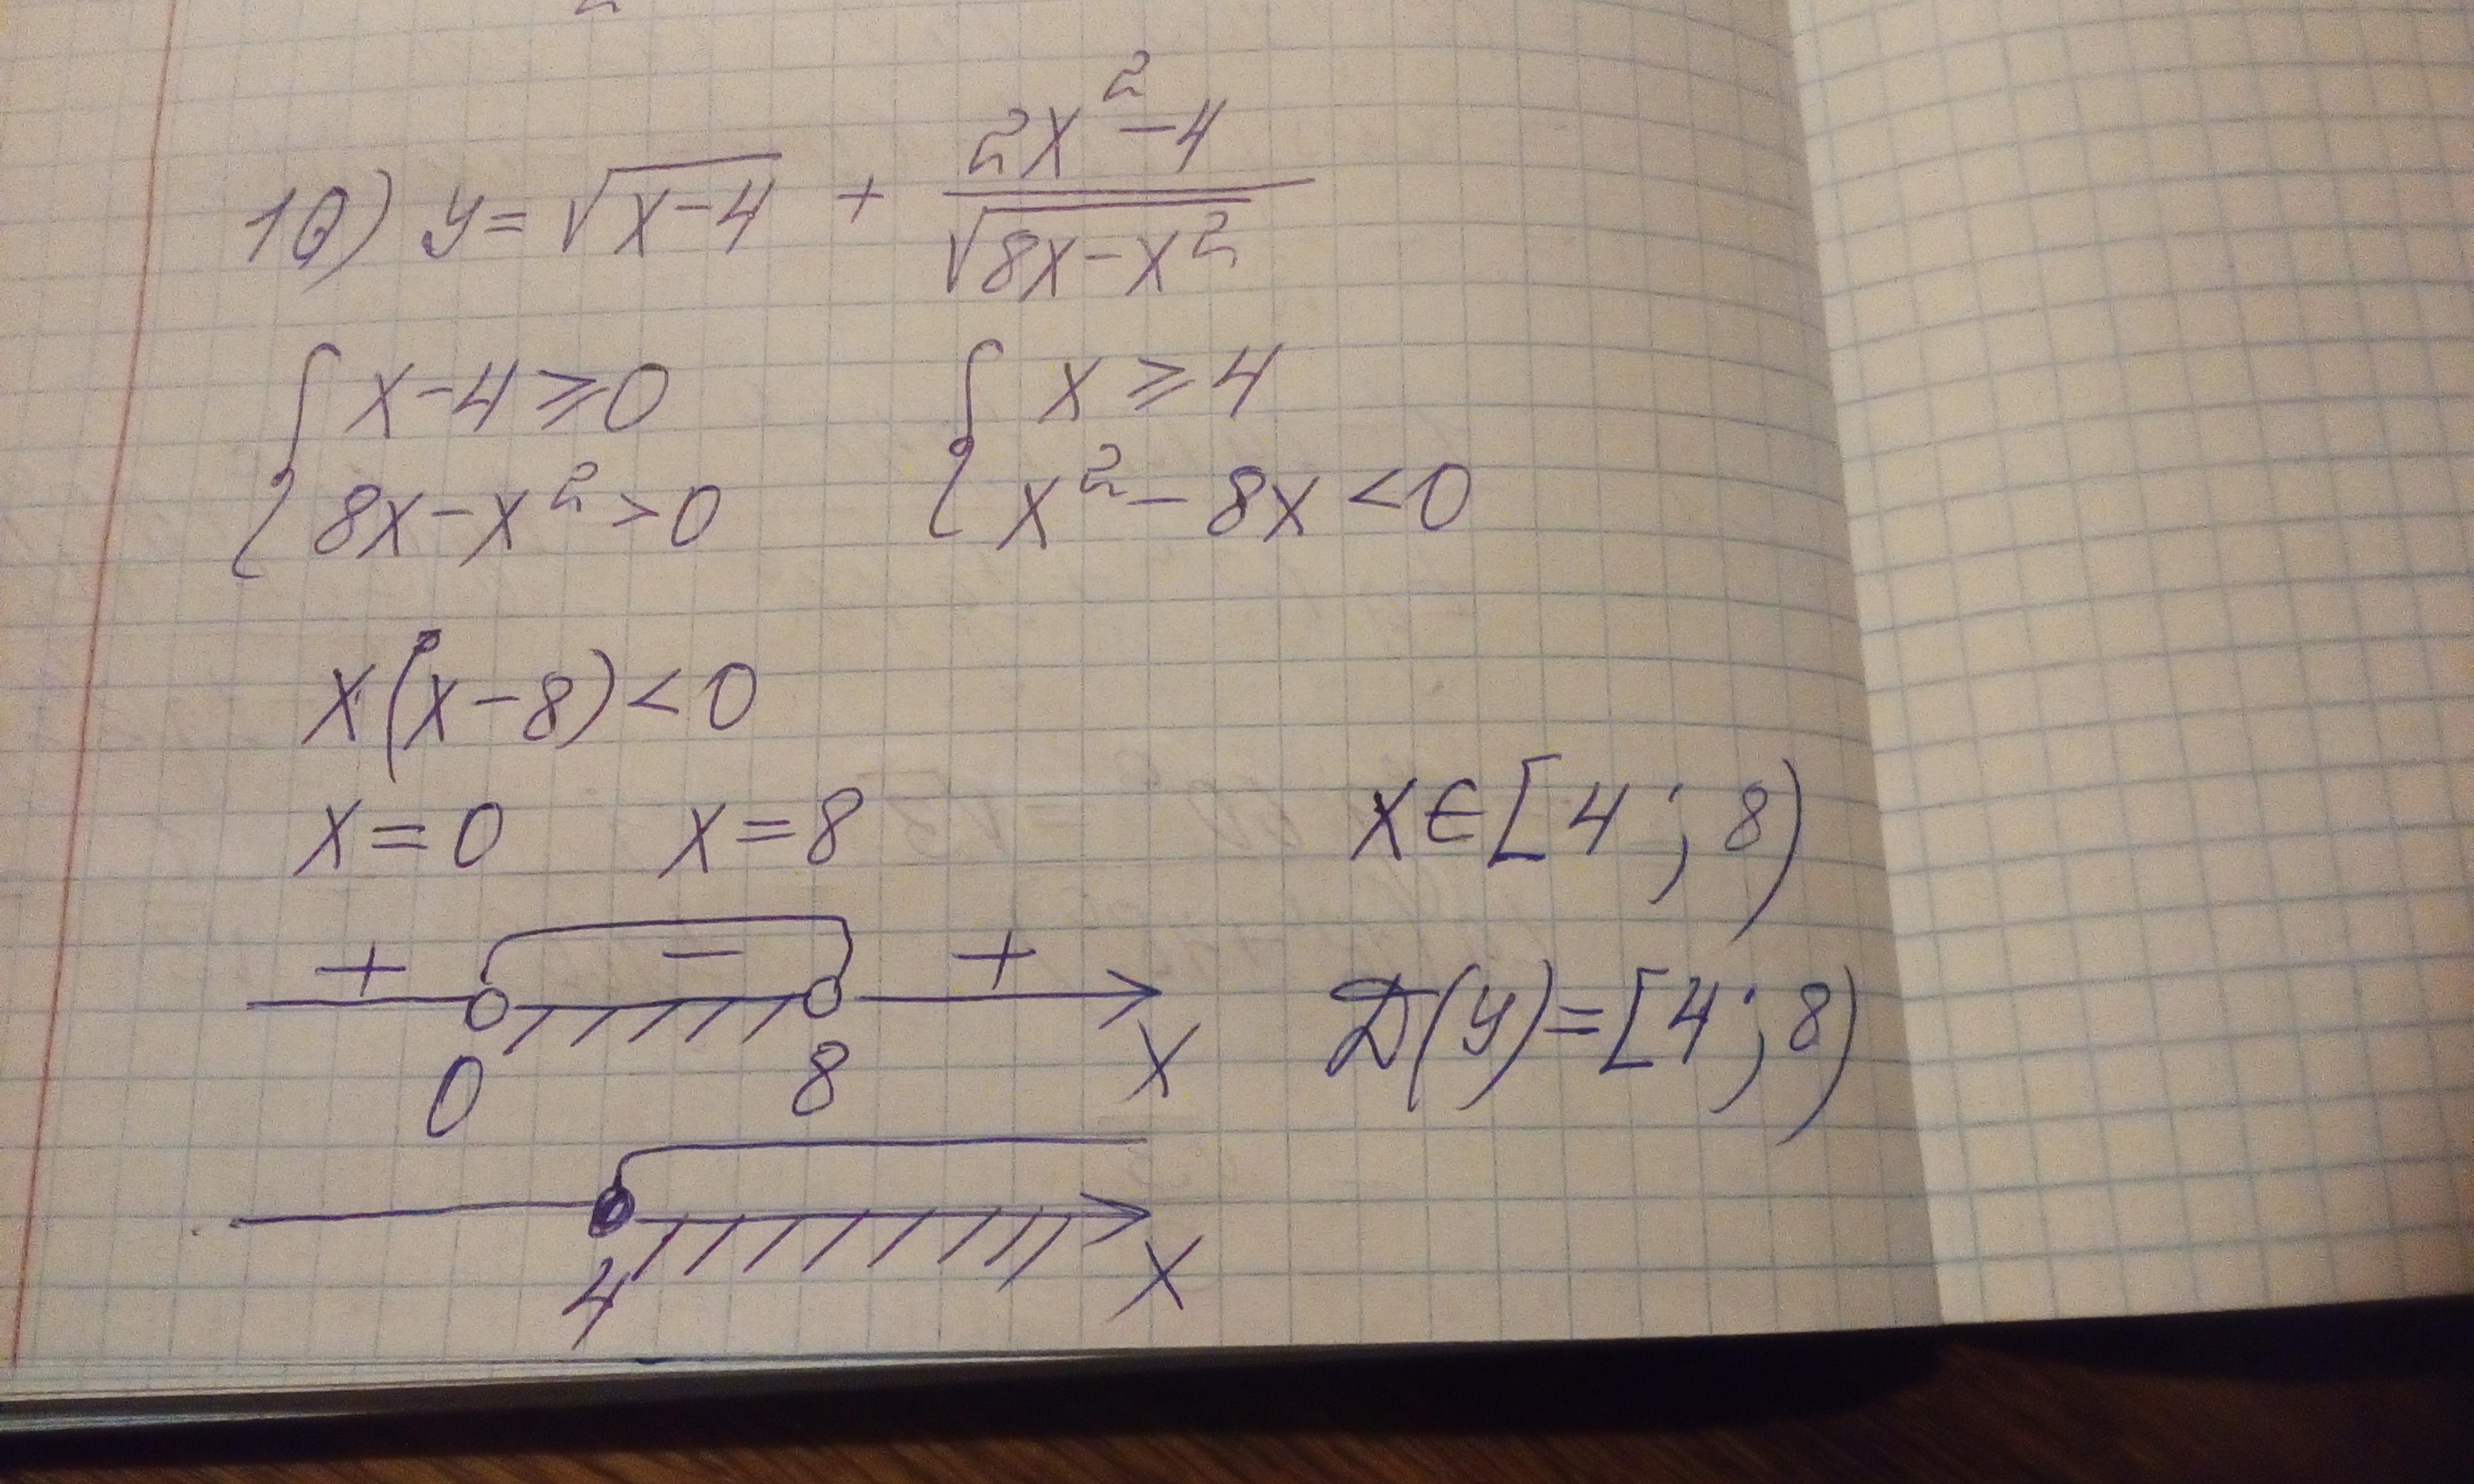 10) y = √(x-4) + (2x² - 4)/√(8x - x²)
{ x - 4 ⩾ 0
{ 8x - x² > 0
{ x ⩾ 4
{ x² - 8x < 0
x(x - 8) < 0
x = 0 x = 8
x ∈ [4 ; 8)
+ − +
0 8 x
D(y) = [4 ; 8)
4 x